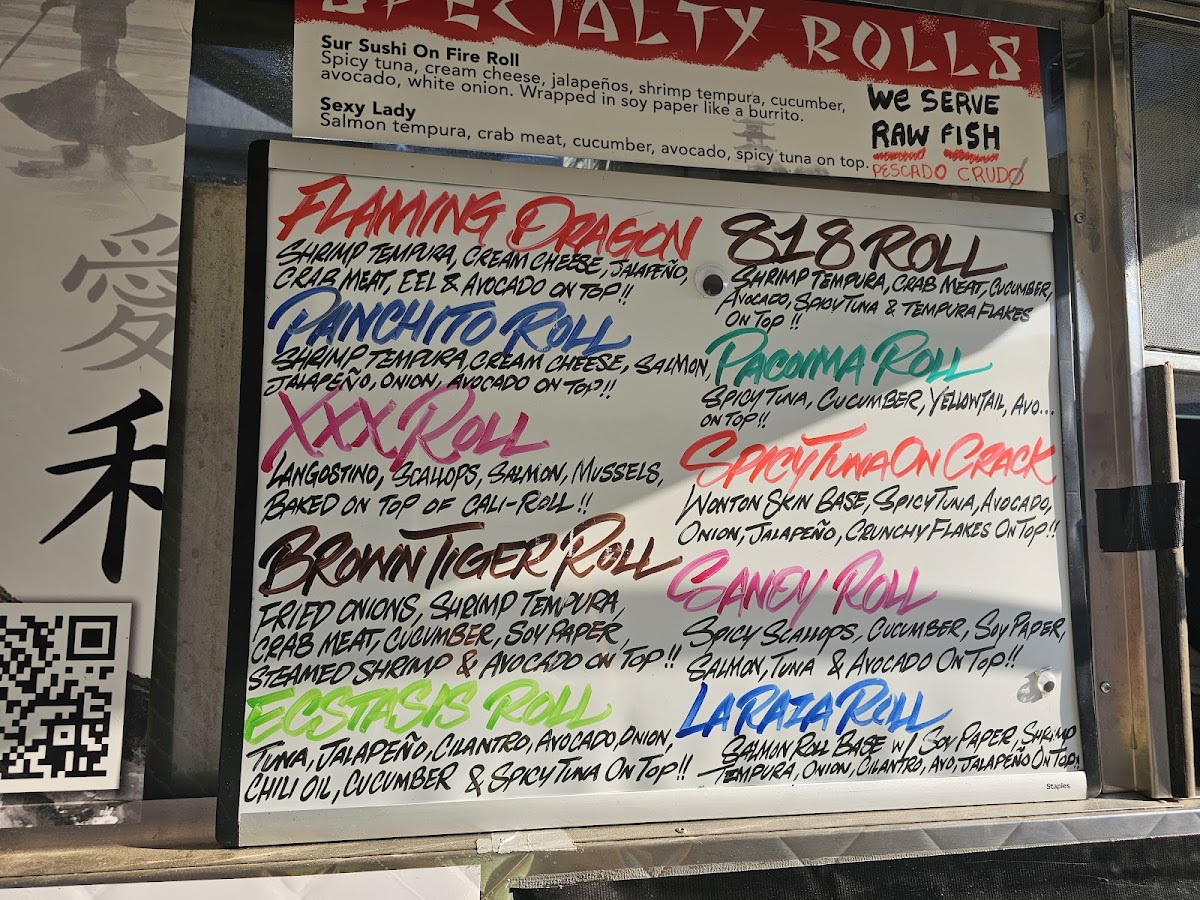 SPECIALTY ROLLS
Sur Sushi On Fire Roll
Spicy tuna, cream cheese, jalapeños, shrimp tempura, cucumber,
avocado, white onion. Wrapped in soy paper like a burrito.
Sexy Lady
Salmon tempura, crab meat, cucumber, avocado, spicy tuna on top.
WE SERVE
RAW FISH
PESCADO CRUDO
愛
和
FLAMING DRAGON
SHRIMP TEMPURA, CREAM CHEESE, JALAPEÑO,
CRAB MEAT, EEL & AVOCADO ON TOP!!
PANCHITO ROLL
SHRIMP TEMPURA, CREAM CHEESE, SALMON,
JALAPEÑO, ONION, AVOCADO ON TOP!!
XXX ROLL
LANGOSTINO, SCALLOPS, SALMON, MUSSELS,
BAKED ON TOP OF CALI-ROLL!!
BROWN TIGER ROLL
FRIED ONIONS, SHRIMP TEMPURA,
CRAB MEAT, CUCUMBER, SOY PAPER,
STEAMED SHRIMP & AVOCADO ON TOP!!
ECSTASIS ROLL
TUNA, JALAPEÑO, CILANTRO, AVOCADO, ONION,
CHILI OIL, CUCUMBER & SPICY TUNA ON TOP!!
818 ROLL
SHRIMP TEMPURA, CRAB MEAT, CUCUMBER,
AVOCADO, SPICY TUNA & TEMPURA FLAKES
ON TOP!!
PACOIMA ROLL
SPICY TUNA, CUCUMBER, YELLOWTAIL, AVO...
ON TOP!!
SPICY TUNA ON CRACK
WONTON SKIN BASE, SPICY TUNA, AVOCADO,
ONION, JALAPEÑO, CRUNCHY FLAKES ON TOP!!
SANEY ROLL
SPICY SCALLOPS, CUCUMBER, SOY PAPER,
SALMON, TUNA & AVOCADO ON TOP!!
LA RAZA ROLL
SALMON ROLL BASE W/ SOY PAPER, SHRIMP
TEMPURA, ONION, CILANTRO, AVO, JALAPEÑO ON TOP!
Staples